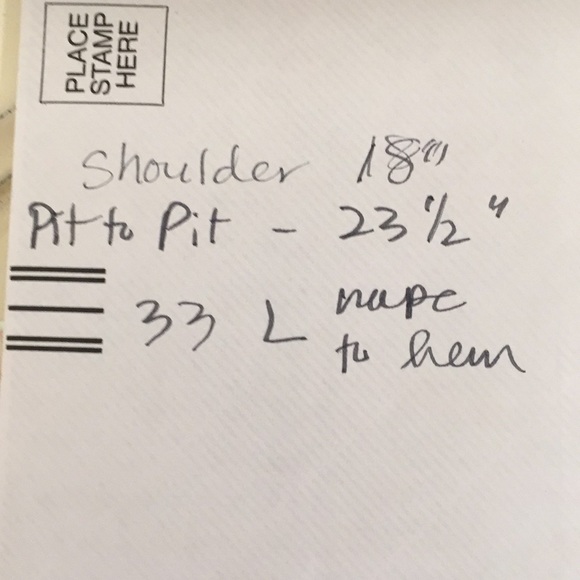 PLACE
STAMP
HERE
Shoulder 18"
Pit to Pit - 23 1/2"
33 L nape
to hem